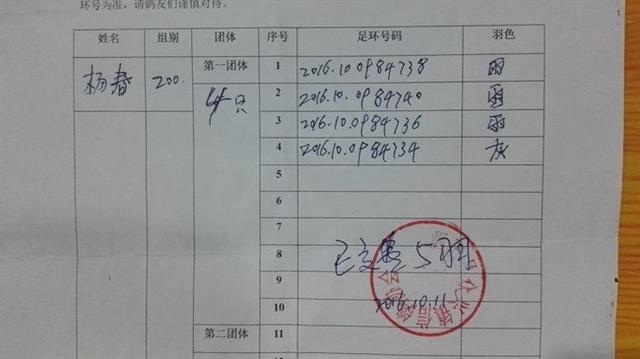 环号为准，请鸽友们谨慎对待。
姓名 组别 团体 序号 足环号码 羽色
杨春 200. 第一团体 1 2016.10 0984738 雨
4只 2 2016.10.0984740 雨
3 2016.10.0984736 雨
4 2016.10.0984734 灰
5
6
7
8 已交费5羽
9
2016.10.11
10
第二团体 11